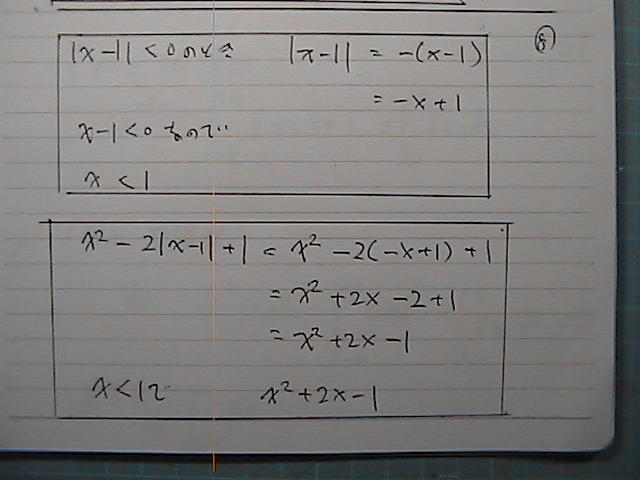 ⑧
|x-1| < 0 のとき |x-1| = -(x-1)
= -x+1
x-1<0 なので
x < 1
x² - 2|x-1| + 1 = x² - 2(-x+1) + 1
= x² + 2x - 2 + 1
= x² + 2x - 1
x < 1で x² + 2x - 1